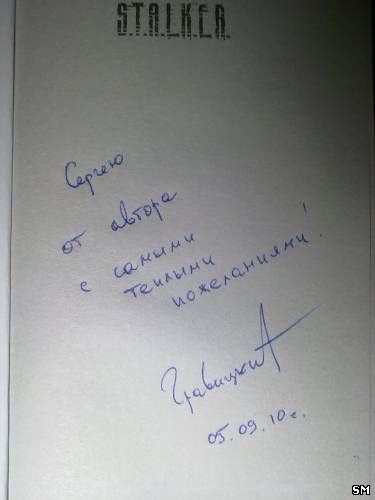 S.T.A.L.K.E.R.
Сергею
от автора
с самыми
теплыми
пожеланиями!
Гравицкий
05.09.10г.
SM